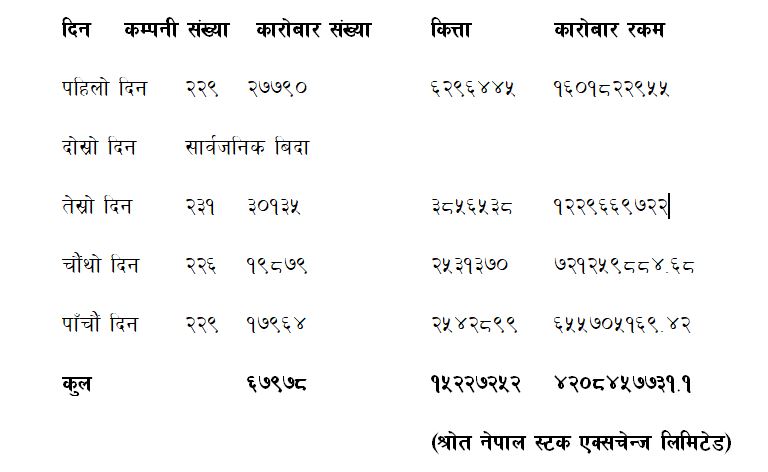 दिन कम्पनी संख्या कारोबार संख्या कित्ता कारोबार रकम
पहिलो दिन २२९ २७७९० ६२९६४४५ १६०१८२२९५५
दोस्रो दिन सार्वजनिक बिदा
तेस्रो दिन २३१ ३०१३५ ३८५६५३८ १२२९६६९७२२
चौंथो दिन २२६ १९८७९ २५३१३७० ७२१२५९८८४.६८
पाँचौं दिन २२९ १७९६४ २५४२८९९ ६५५७०५१६९.४२
कुल ६७९७८ १५२२७२५२ ४२०८४५७७३१.१
(श्रोत नेपाल स्टक एक्सचेन्ज लिमिटेड)